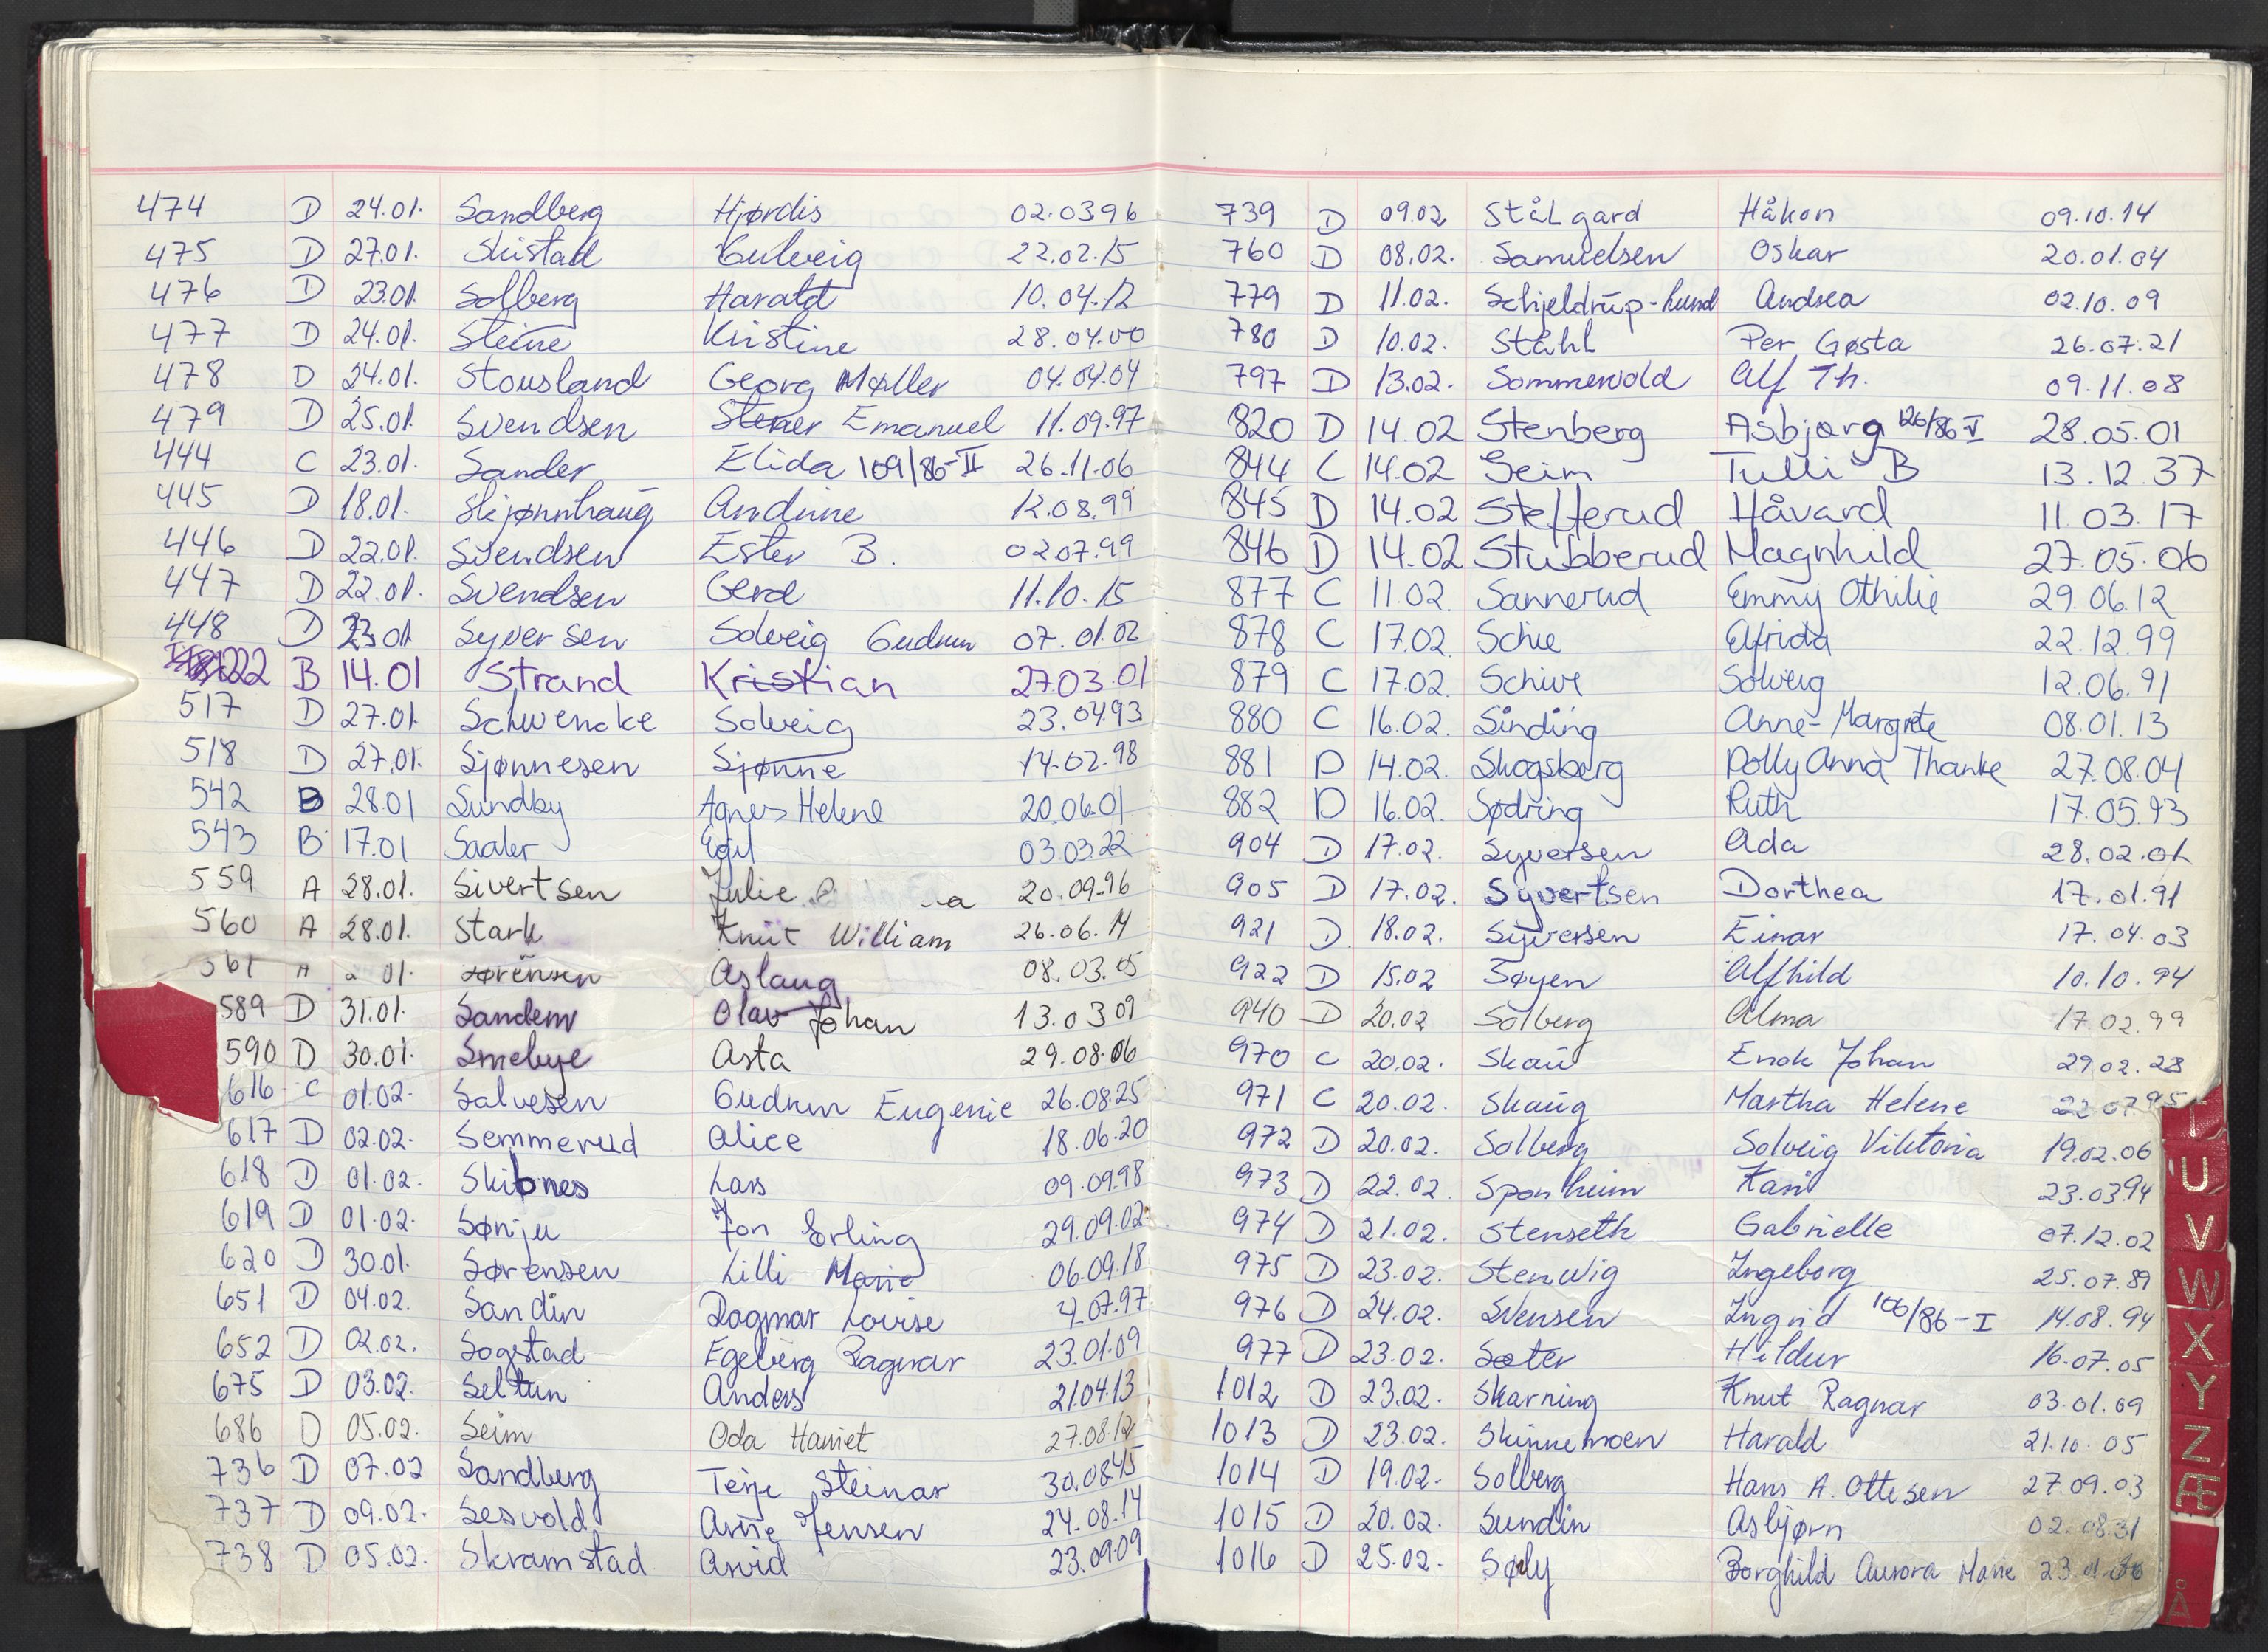 474 D 24.01. Sandberg Hjørdis 02.03 96
475 D 27.01. Skistad Gulveig 22.02.15
476 D 23.01. Solberg Harald 10.04.12
477 D 24.01. Steine Kristine 28.04.00
478 D 24.01. Stousland Georg Møller 04.04.04
479 D 25.01. Svendsen Stener Emanuel 11.09.97
444 C 23.01. Sander Elida 109/86-II 26.11.06
445 D 18.01. Skjønnhaug Andrine 12.08.99
446 D 22.01. Svendsen Ester B. 02.07.99
447 D 22.01. Svendsen Gerd 11.10.15
448 D 23.01 Syversen Solveig Gudrun 07.01.02
222 B 14.01 Strand Kristian 27.03.01
517 D 27.01. Schwencke Solveig 23.04.93
518 D 27.01. Sjønnesen Sjønne 14.02.98
542 B 28.01 Sundby Agnes Helene 20.06.01
543 B 17.01 Saaler Egil 03.03.22
559 A 28.01. Sivertsen Julie 20.09.96
560 A 28.01. Stark Knut William 26.06.14
561 A 01. Sørensen Aslaug 08.03.05
589 D 31.01. Sandem Olav Johan 13.03 09
590 D 30.01. Smebye Asta 29.08.06
616 C 01.02. Salvesen Gudrun Eugenie 26.08.25
617 D 02.02. Semmerud Alice 18.06.20
618 D 01.02. Skibnes Lars 09.09.98
619 D 01.02. Sønju Jon Erling 29.09.02
620 D 30.01. Sørensen Lilli Marie 06.09.18
651 D 04.02. Sandin Dagmar Lovise 4.07.97
652 D 02.02. Sogstad Egeberg Ragnar 23.01.09
675 D 03.02. Seltun Anders 21.04.13
686 D 05.02. Seim Oda Harriet 27.08.12
736 D 07.02 Sandberg Terje Steinar 30.08.45
737 D 09.02. Sesvold Arne Jensen 24.08.14
738 D 05.02. Skramstad Arvid 23.09.09
739 D 09.02 Stålgard Håkon 09.10.14
760 D 08.02. Samuelsen Oskar 20.01.04
779 D 11.02. Schjeldrup-Lund Andrea 02.10.09
780 D 10.02. Ståhl Per Gøsta 26.07.21
797 D 13.02. Sommervold Alf Th. 09.11.08
820 D 14.02 Stenberg Asbjørg 126/86-V 28.05.01
844 C 14.02 Seim Tulli B 13.12.37
845 D 14.02 Stefferud Håvard 11.03.17
846 D 14.02 Stubberud Magnhild 27.05.06
877 C 11.02. Sannerud Emmy Othilie 29.06.12
878 C 17.02. Schie Elfrida 22.12.99
879 C 17.02. Schive Solveig 12.06.91
880 C 16.02. Sinding Anne-Margrete 08.01.13
881 D 14.02. Skogsberg Dolly Anna Thanke 27.08.04
882 D 16.02. Sødring Ruth 17.05.93
904 D 17.02. Syversen Ada 28.02.01
905 D 17.02. Syvertsen Dorthea 17.01.91
921 D. 18.02. Syversen Einar 17.04.03
922 D 15.02 Søyen Alfhild 10.10.94
940 D 20.02 Solberg Alma 17.02.99
970 C 20.02. Skau Enok Johan 29.02.28
971 C 20.02. Skaug Martha Helene 22.07.95
972 D 20.02. Solberg Solveig Viktoria 19.02.06
973 D 22.02. Sponheim Kari 23.03.94
974 D 21.02. Stenseth Gabrielle 07.12.02
975 D 23.02. Stenwig Ingeborg 25.07.89
976 D 24.02. Svensen Ingrid 106/86-I 14.08.94
977 D 23.02. Sæter Hildur 16.07.05
1012 D 23.02. Skarning Knut Ragnar 03.01.09
1013 D 23.02. Skinnemoen Harald 21.10.05
1014 D 19.02. Solberg Hans A. Ottesen 27.09.03
1015 D 20.02. Sundin Asbjørn 02.08.31
1016 D 25.02. Søly Borghild Aurora Marie 23.01.
T
U
V
W
X
Y
Z
Æ
Å